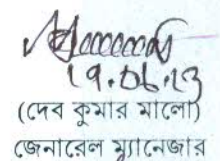 19.06.23
(দেব কুমার মালো)
জেনারেল ম্যানেজার